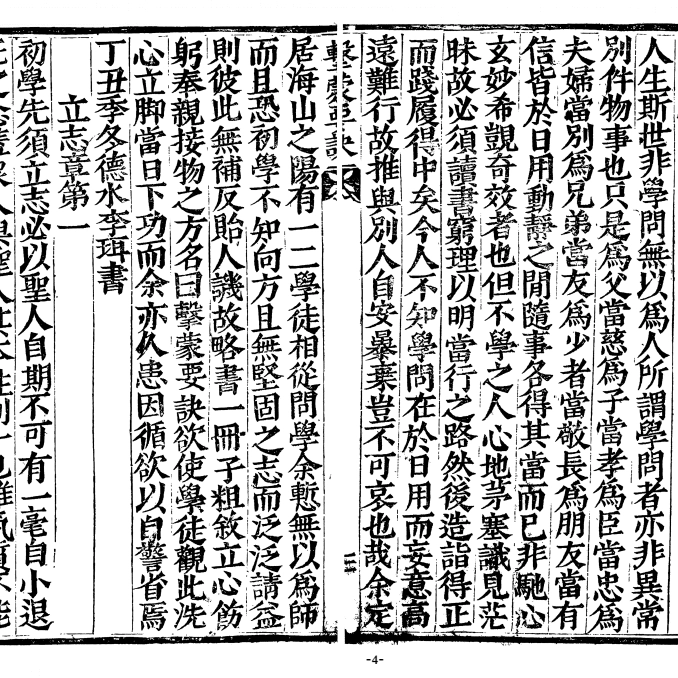 人生斯世非學問無以爲人所謂學問者亦非異常
別件物事也只是爲父當慈爲子當孝爲臣當忠爲
夫婦當別爲兄弟當友爲少者當敬長爲朋友當有
信皆於日用動靜之閒隨事各得其當而已非馳心
玄妙希覬奇效者也但不學之人心地茅塞識見茫
昧故必須讀書窮理以明當行之路然後造詣得正
而踐履得中矣今人不知學問在於日用而妄意高
遠難行故推與別人自安暴棄豈不可哀也哉余定
擊蒙要訣
居海山之陽有一二學徒相從問學余慙無以爲師
而且恐初學不知向方且無堅固之志而泛泛請益
則彼此無補反貽人譏故略書一冊子粗敘立心飭
躬奉親接物之方名曰擊蒙要訣欲使學徒觀此洗
心立脚當日下功而余亦久患因循欲以自警省焉
丁丑季冬德水李珥書
立志章第一
初學先須立志必以聖人自期不可有一毫自小退
-4-